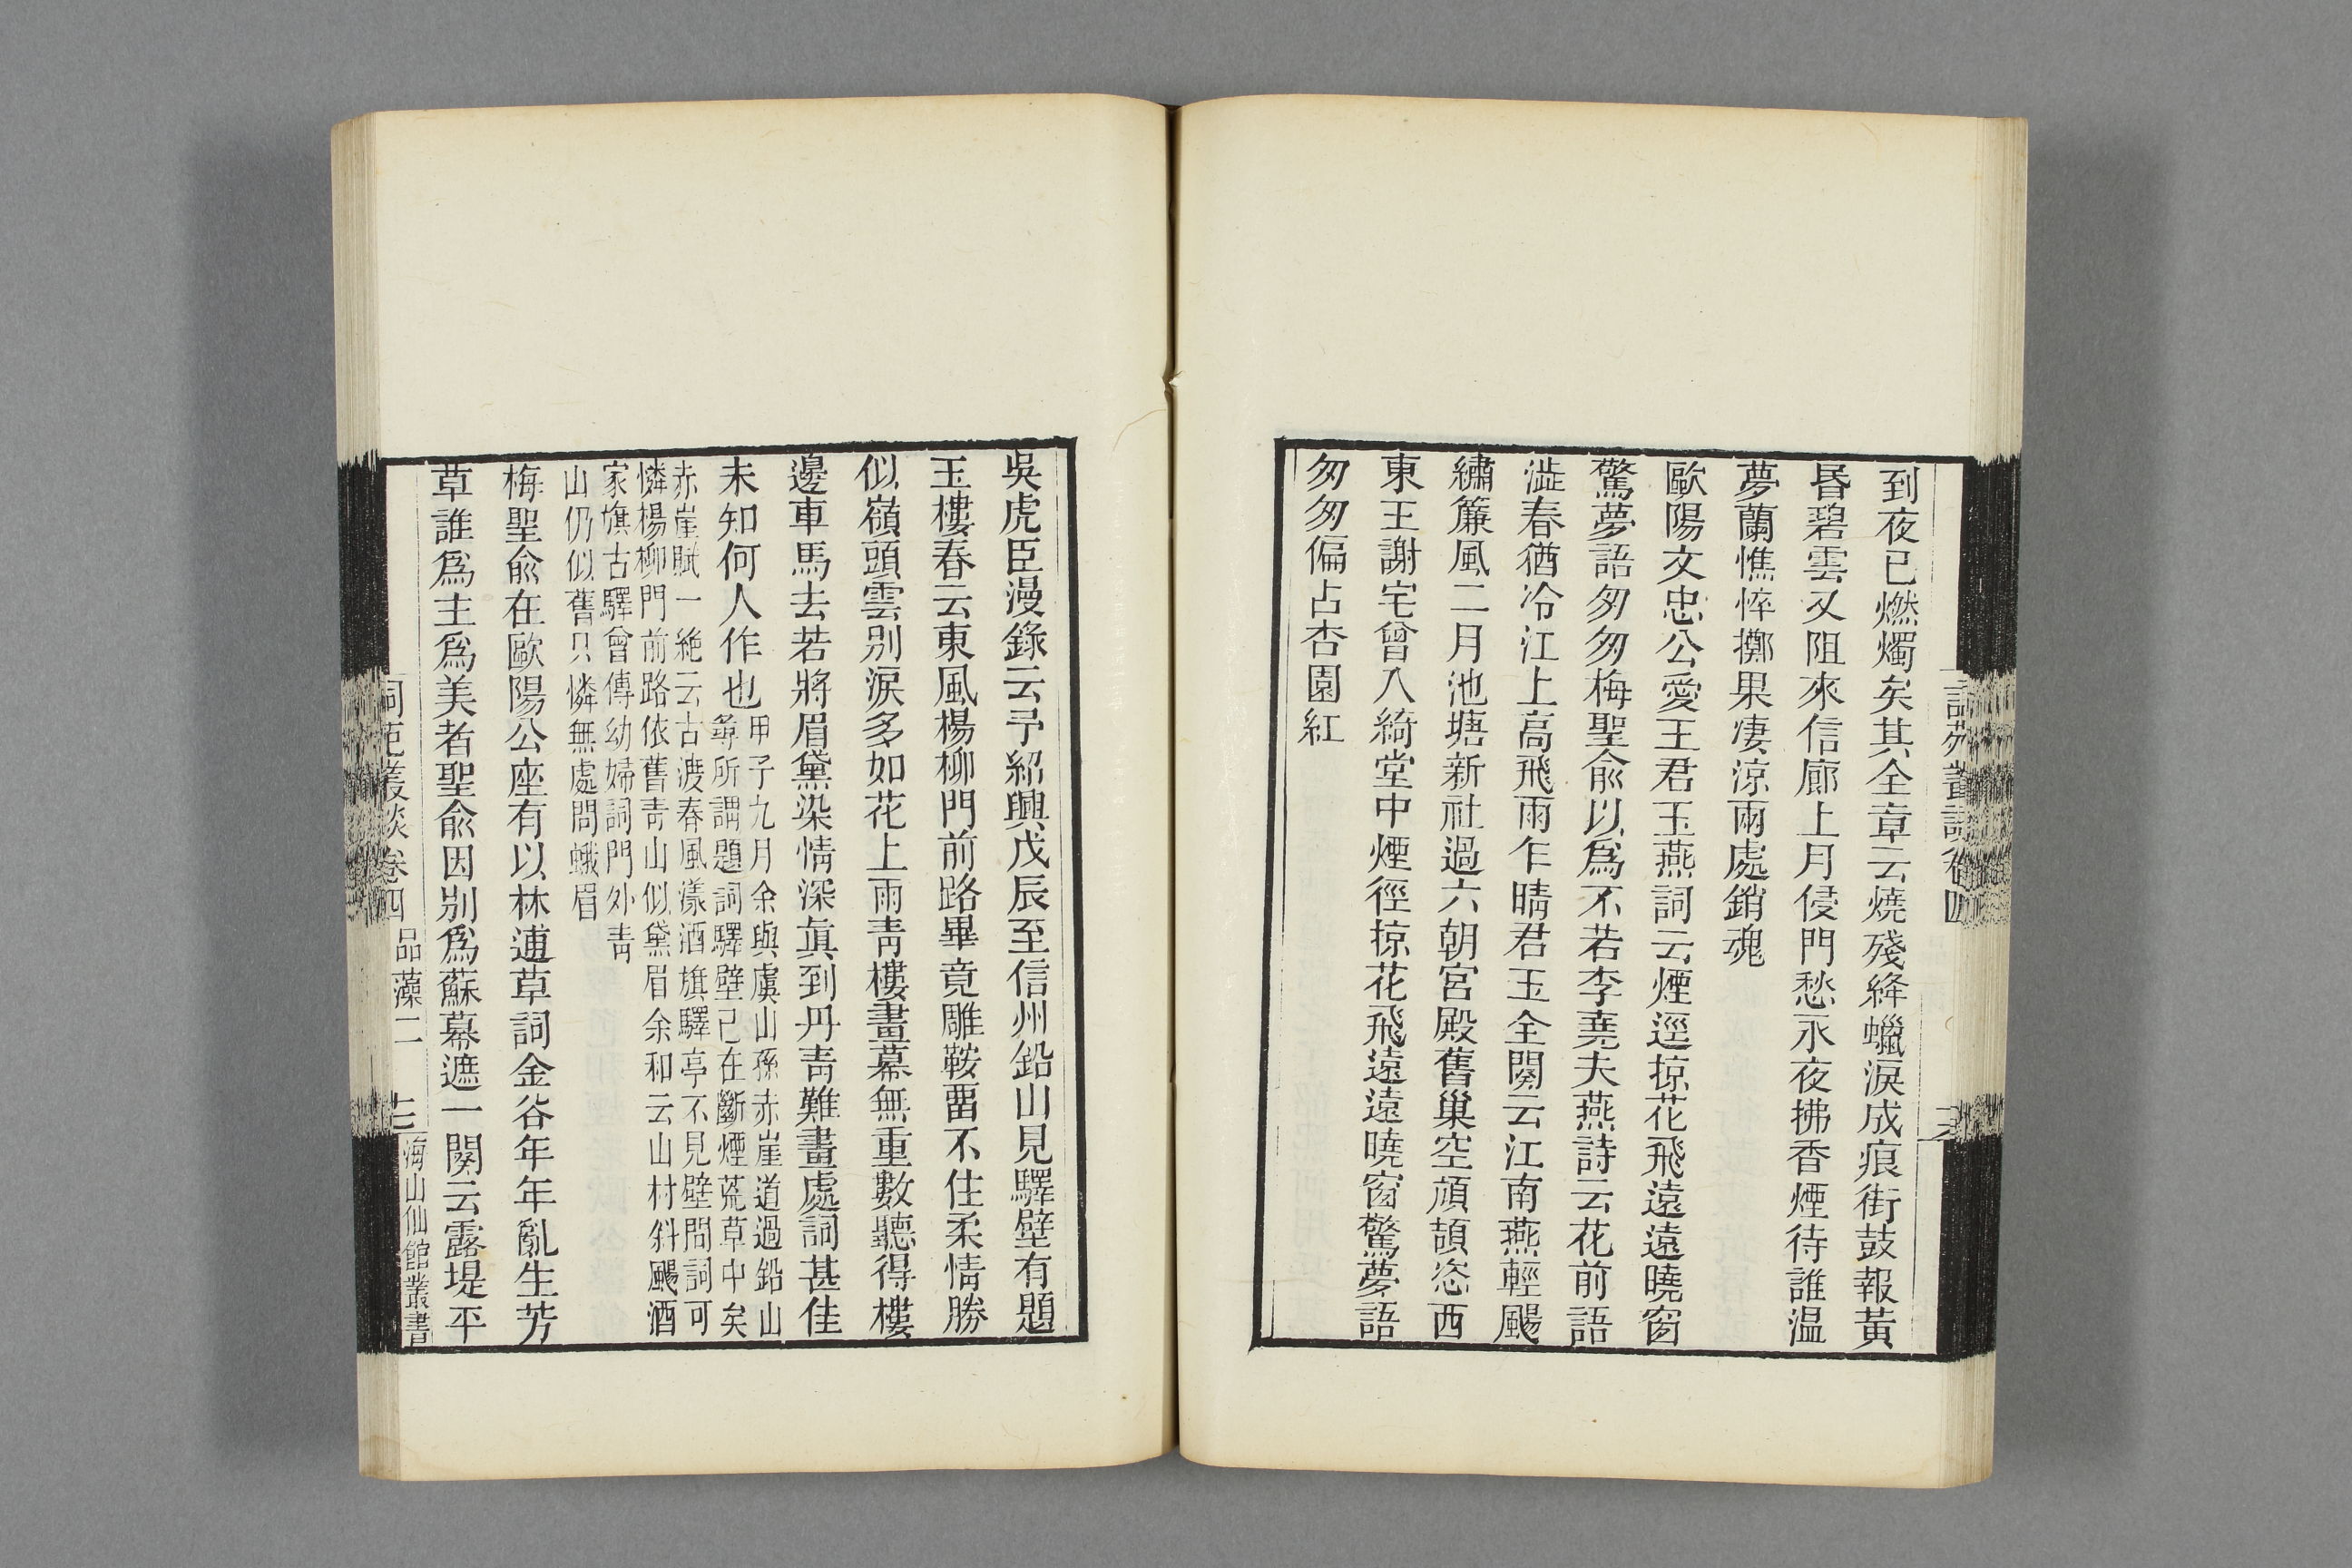 到夜已燃燭矣其全章云燒殘絳蠟淚成痕街鼓報黃
昏碧雲又阻來信廊上月侵門愁永夜拂香煙待誰溫
夢蘭憔悴擲果凄涼兩處銷魂
歐陽文忠公愛王君玉燕詞云煙逕掠花飛遠遠曉窗
驚夢語匆匆梅聖俞以為不若李堯夫燕詩云花前語
澁春猶冷江上高飛雨乍晴君玉全闋云江南燕輕颺
繡簾風二月池塘新社過六朝宮殿舊巢空頑頡恣西
東王謝宅曾入綺堂中煙徑掠花飛遠遠曉窗驚夢語
匆匆偏占杏園紅
吳虎臣漫錄云予紹興戊辰至信州鉛山見驛壁有題
玉樓春云東風楊柳門前路畢竟雕鞍畱不住柔情勝
似嶺頭雲別淚多如花上雨青樓畫幕無重數聽得樓
邊車馬去若將眉黛染情深眞到丹青難畫處詞甚佳
未知何人作也
甲子九月余與虞山孫赤崖道過鉛山
尋所謂題詞驛壁已在斷煙荒草中矣
赤崖賦一絶云古渡春風漾酒旗驛亭不見壁間詞可
憐楊柳門前路依舊青山似黛眉余和云山村斜颺酒
家旗古驛曾傳幼婦詞門外青
山仍似舊只憐無處問蛾眉
梅聖俞在歐陽公座有以林逋草詞金谷年年亂生芳
草誰爲主爲美者聖俞因別爲蘇幕遮一闋云露堤平
詞苑叢談卷四 品藻二 海山仙館叢書